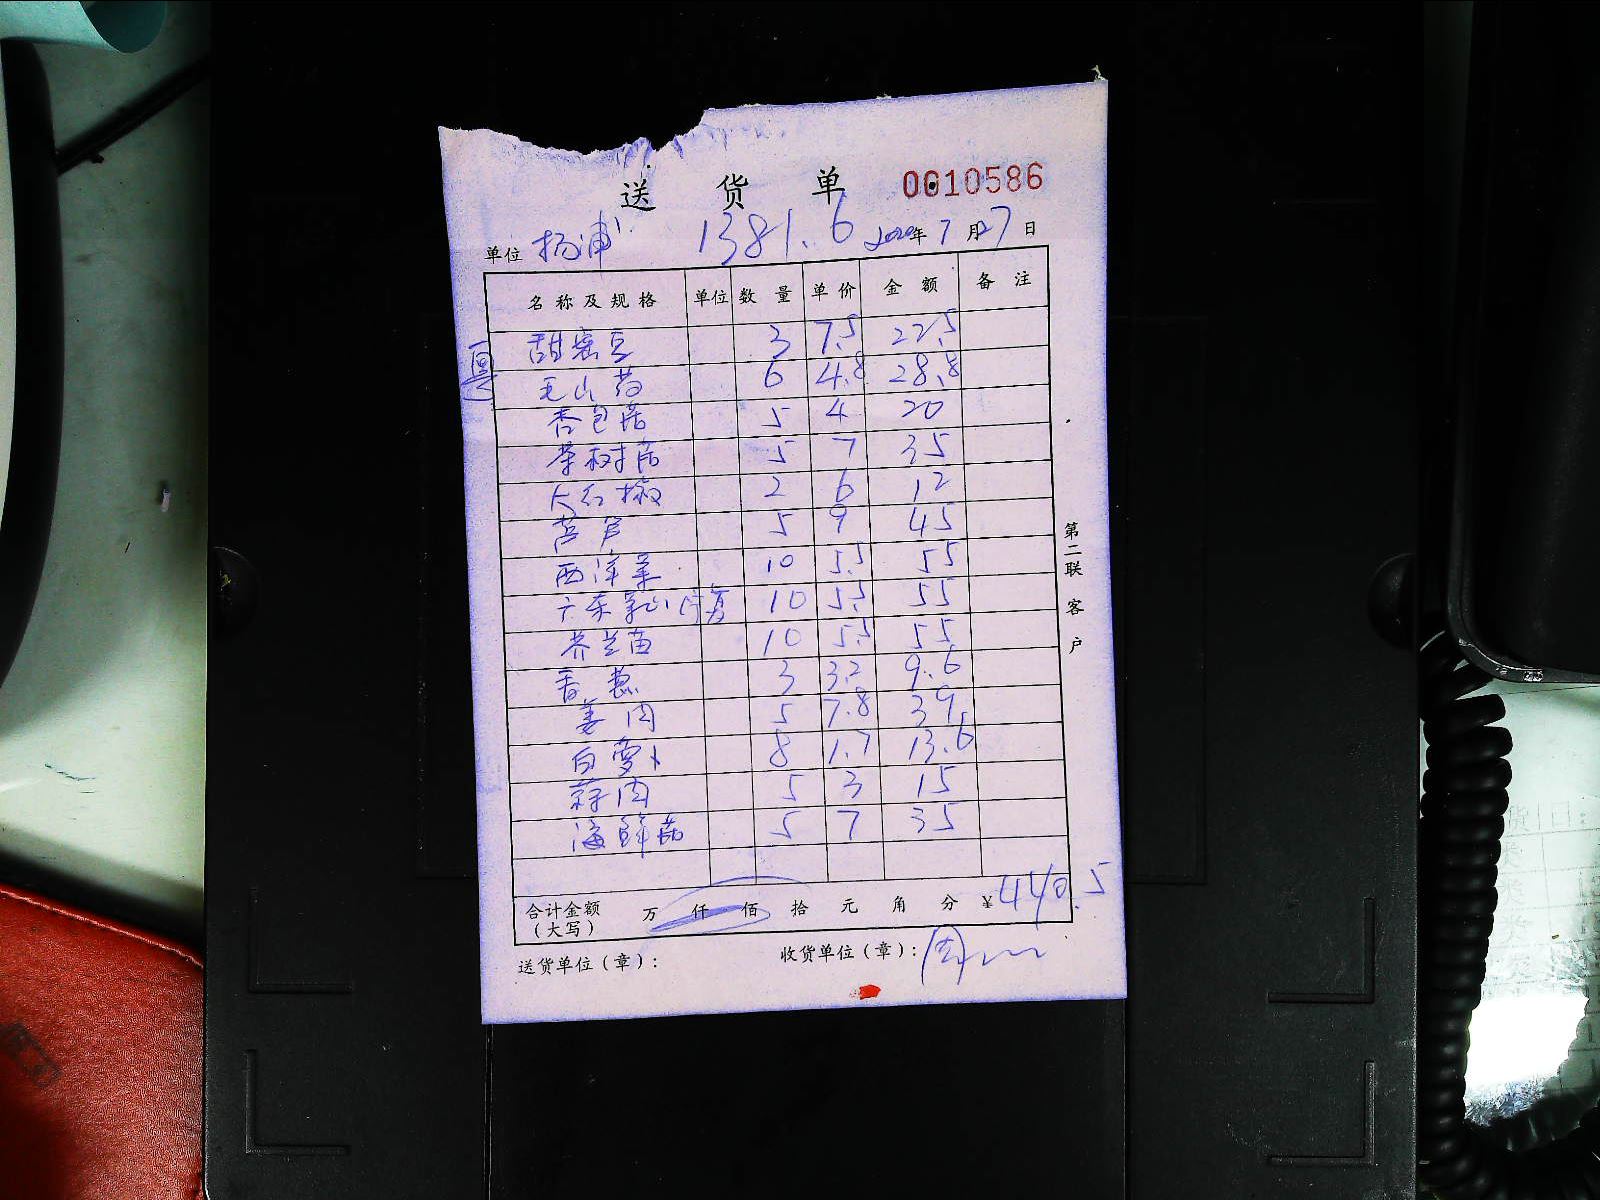 送 货 单 0010586
单位 杨浦 1381.6 2020年 7 月27日
名称及规格 单位 数量 单价 金额 备注
甜蜜豆 3 7.5 22.5
毛山药 6 4.8 28.8
杏包菇 5 4 20
茶树菇 5 7 35
大红椒 2 6 12
芦笋 5 9 45
西洋菜 10 5.5 55
广东菜心 10 5.5 55
芥兰苗 10 5.5 55
香葱 3 3.2 9.6
姜肉 5 7.8 39
白萝卜 8 1.7 13.6
蒜肉 5 3 15
海鲜菇 5 7 35
合计金额（大写） 万 仟 佰 拾 元 角 分 ¥440.5
送货单位（章）: 收货单位（章）:
第二联 客户